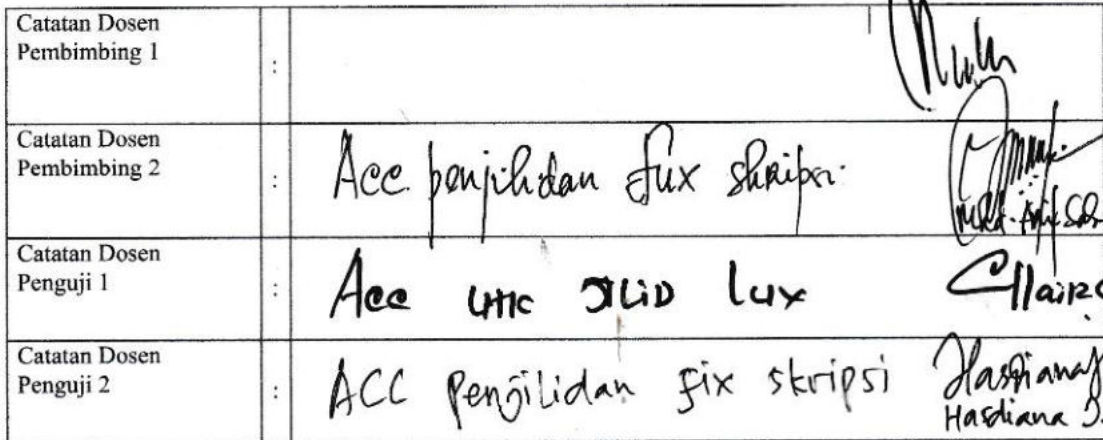 Catatan Dosen
Pembimbing 1 :
Catatan Dosen
Pembimbing 2 : Acc penjilidan fix skripsi
Catatan Dosen
Penguji 1 : Acc utk JILID lux
Catatan Dosen
Penguji 2 : ACC penjilidan fix skripsi
Hasdiana